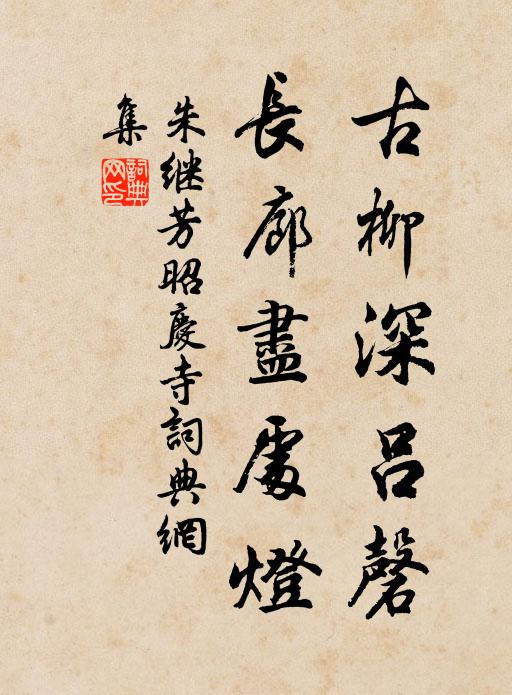 古柳深吕磬
長廊盡處燈
朱继芳昭慶寺詞典網
集
詞典網印